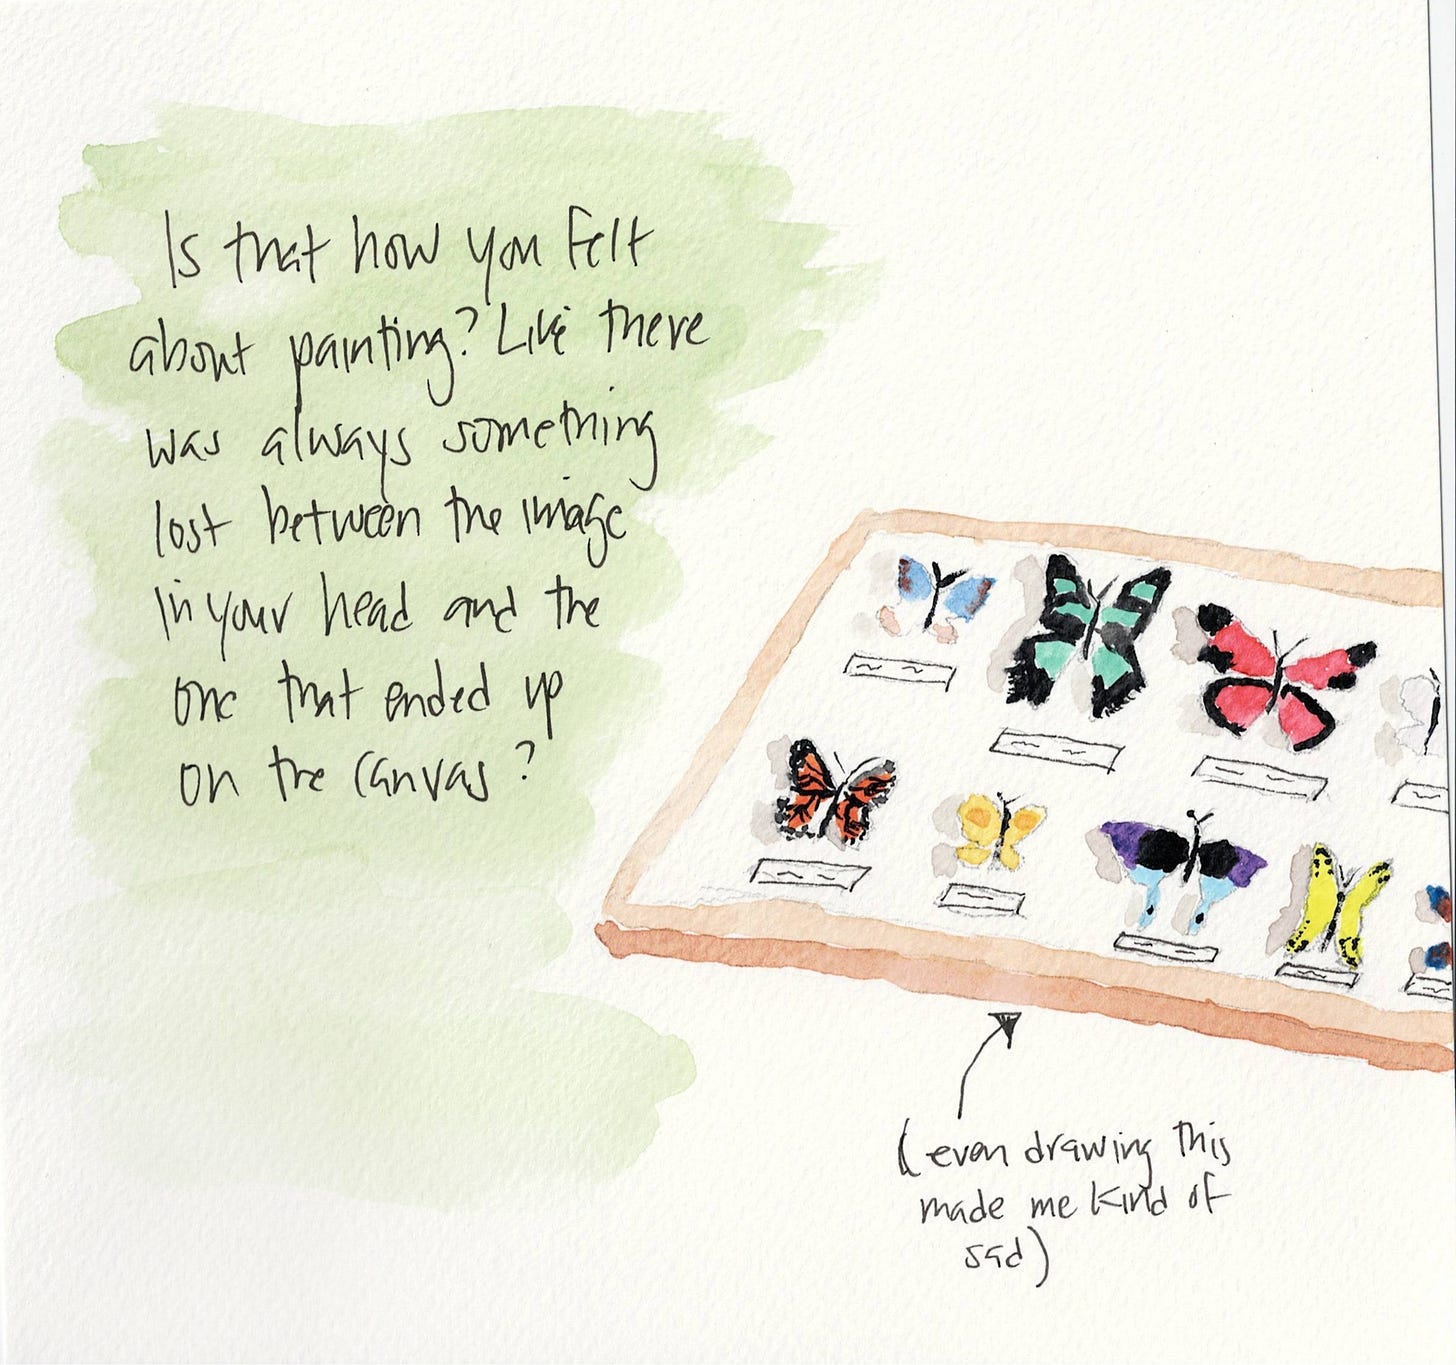 Is that how you felt
about painting? Like there
was always something
lost between the image
in your head and the
one that ended up
on the canvas?
(even drawing this
made me kind of
sad)